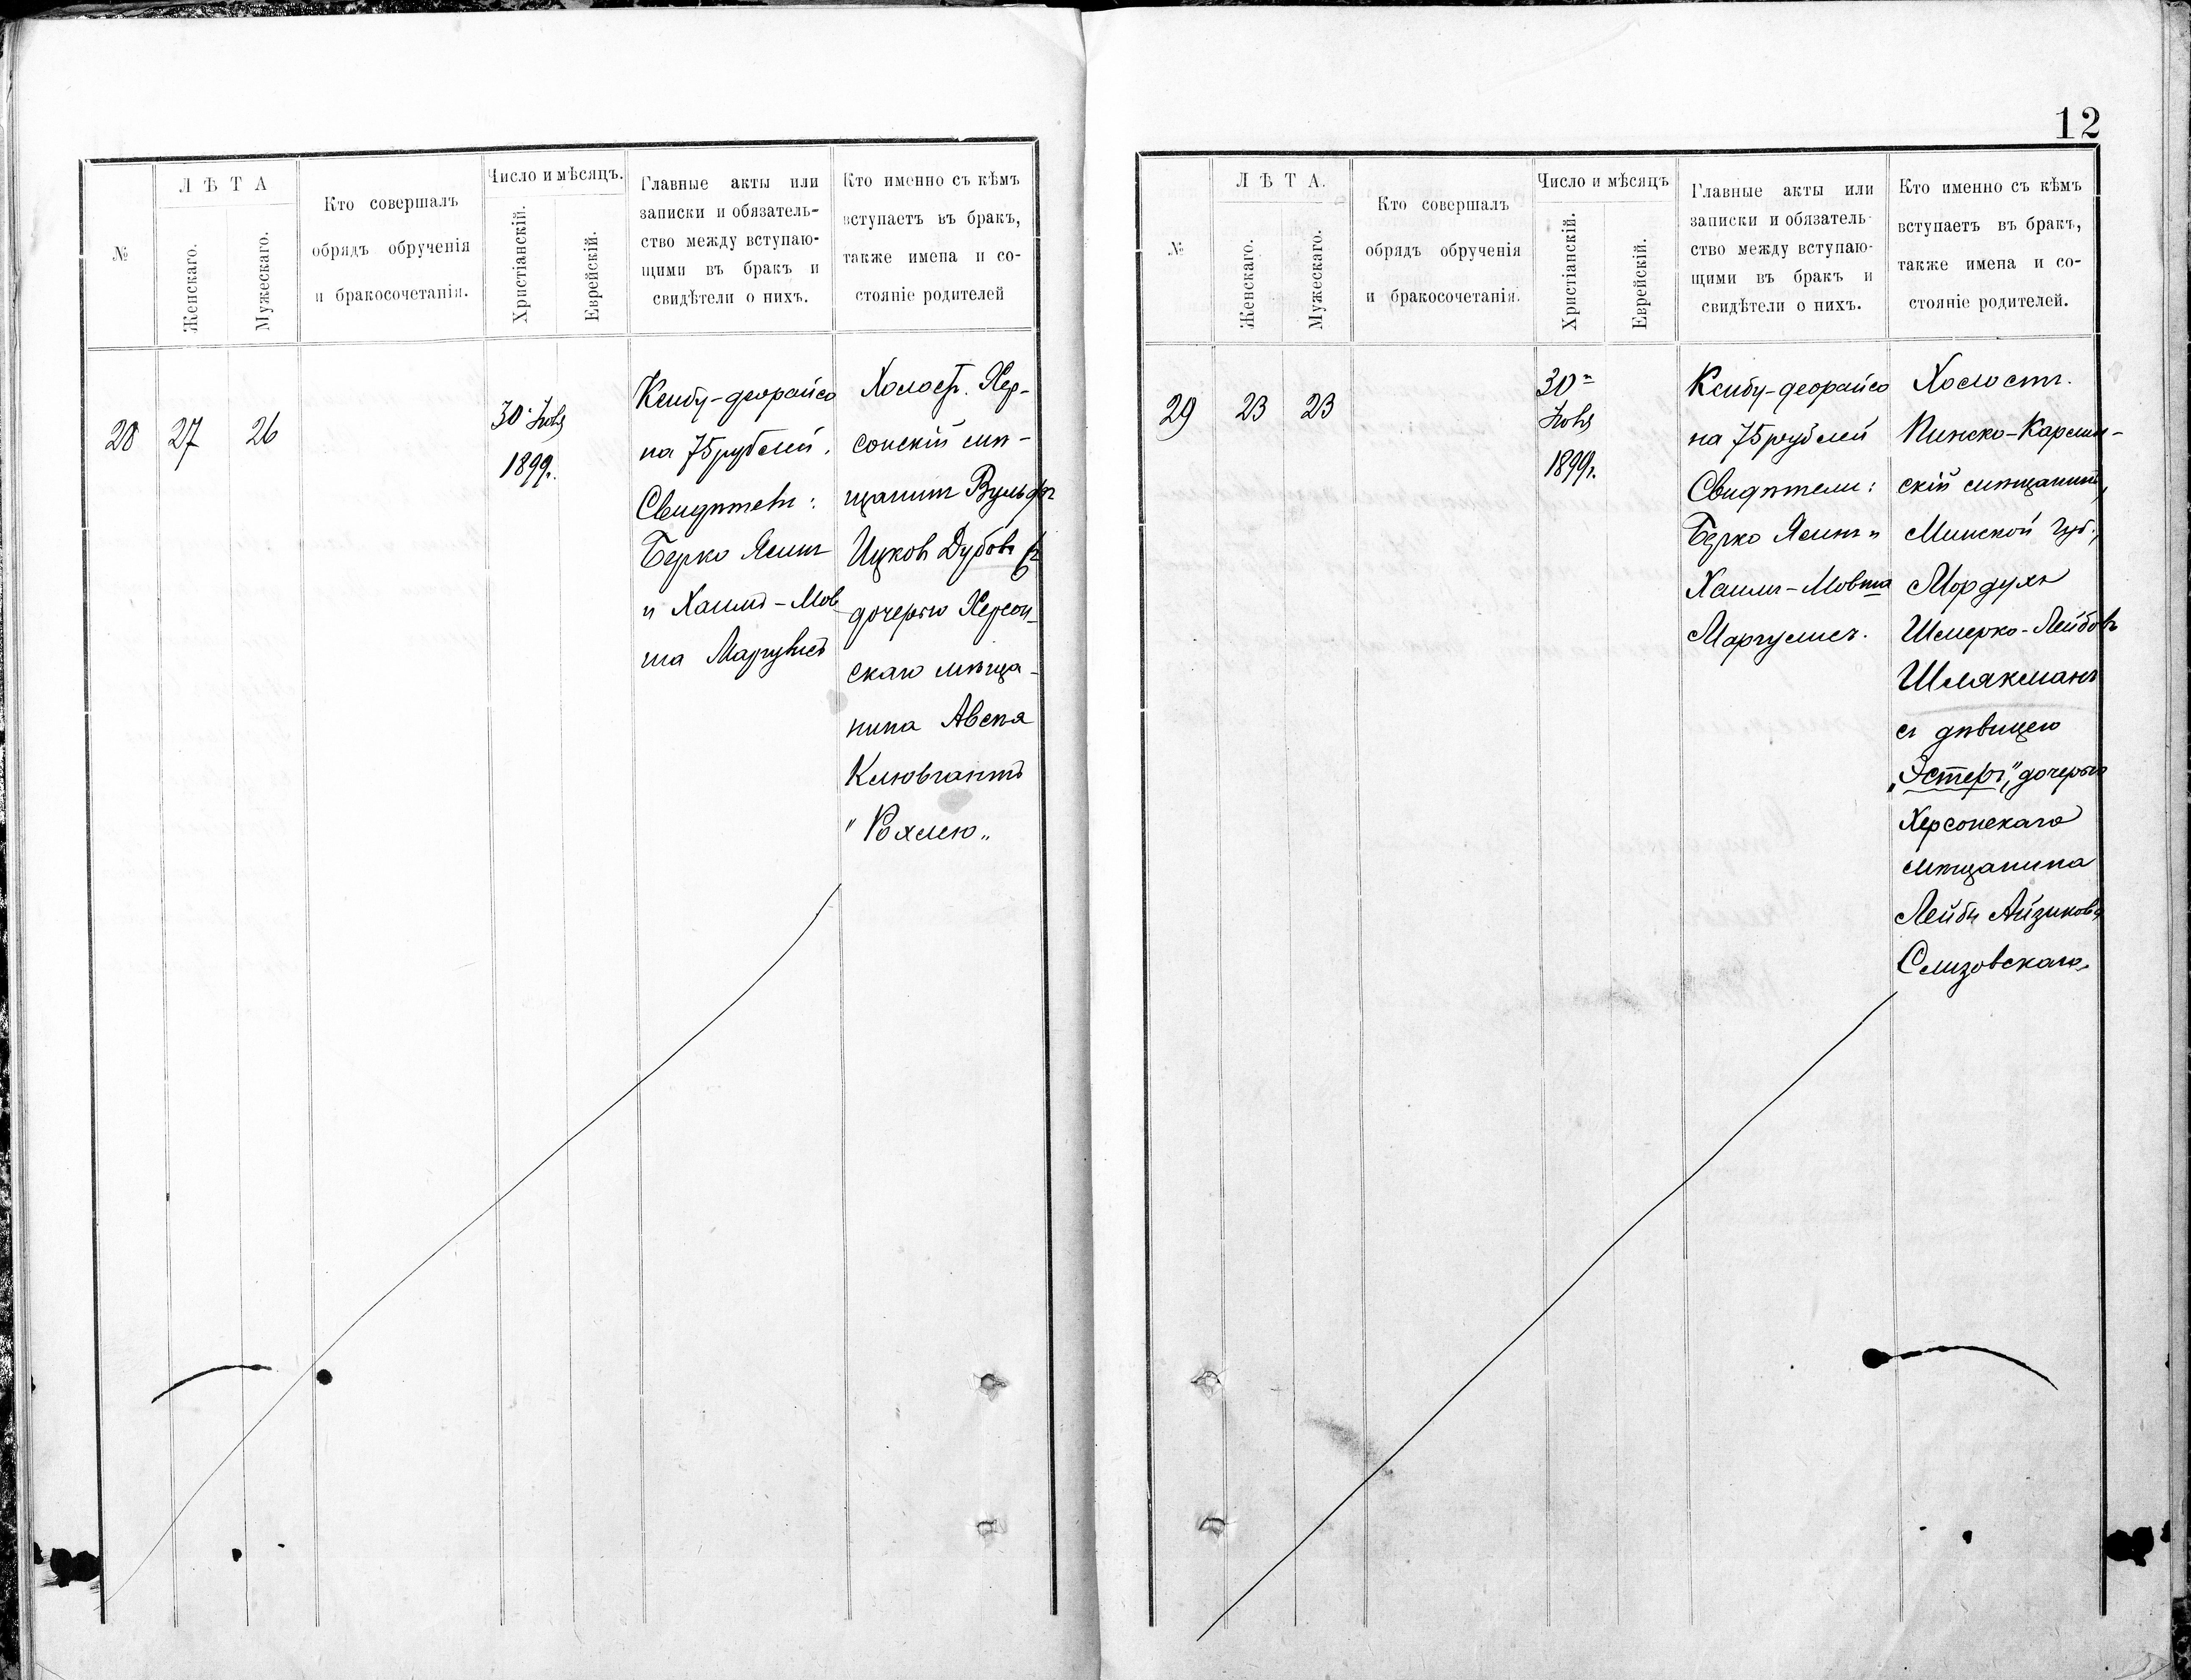 №
ЛѢТА
Женскаго.
Мужескаго.
Кто совершалъ
обрядъ обрученія
и бракосочетанія.
Число и мѣсяцъ.
Христіанскій.
Еврейскій.
Главные акты или
записки и обязатель-
ство между вступаю-
щими въ бракъ и
свидѣтели о нихъ.
Кто именно съ кѣмъ
вступаетъ въ бракъ,
также имена и со-
стояніе родителей
28
27
26
30
1899г.
Ксибу-деорайсо
на 75 рублей.
Берко
и Хаимъ-Мов
ша
Холост. Хер-
сонскій мѣ-
щанинъ Вульфъ
Ицковъ Дубовъ съ
дочерью Херсон-
скаго мѣща-
нина Авсѣя
"Рохлею"
12
№
ЛѢТА.
Женскаго.
Мужескаго.
Кто совершалъ
обрядъ обрученія
и бракосочетанія.
Число и мѣсяцъ
Христіанскій.
Еврейскій.
Главные акты или
записки и обязатель-
ство между вступаю-
щими въ бракъ и
свидѣтели о нихъ.
Кто именно съ кѣмъ
вступаетъ въ бракъ,
также имена и со-
стояніе родителей.
29
23
23
30
1899г.
Ксибу-деорайсо
на 75 рублей
Свидѣтели:
Берко и
Хаимъ-Мовша
Маргулисъ.
Холостъ.
Пинско-Карлин-
скій мѣщанинъ,
Минской губ.,
Мордухъ
Шмерко-Лейбовъ
Шлякманъ
съ дѣвицею
„Эстеръ", дочерью
Херсонскаго
мѣщанина
Лейбы Айзикова
Слизовскаго.